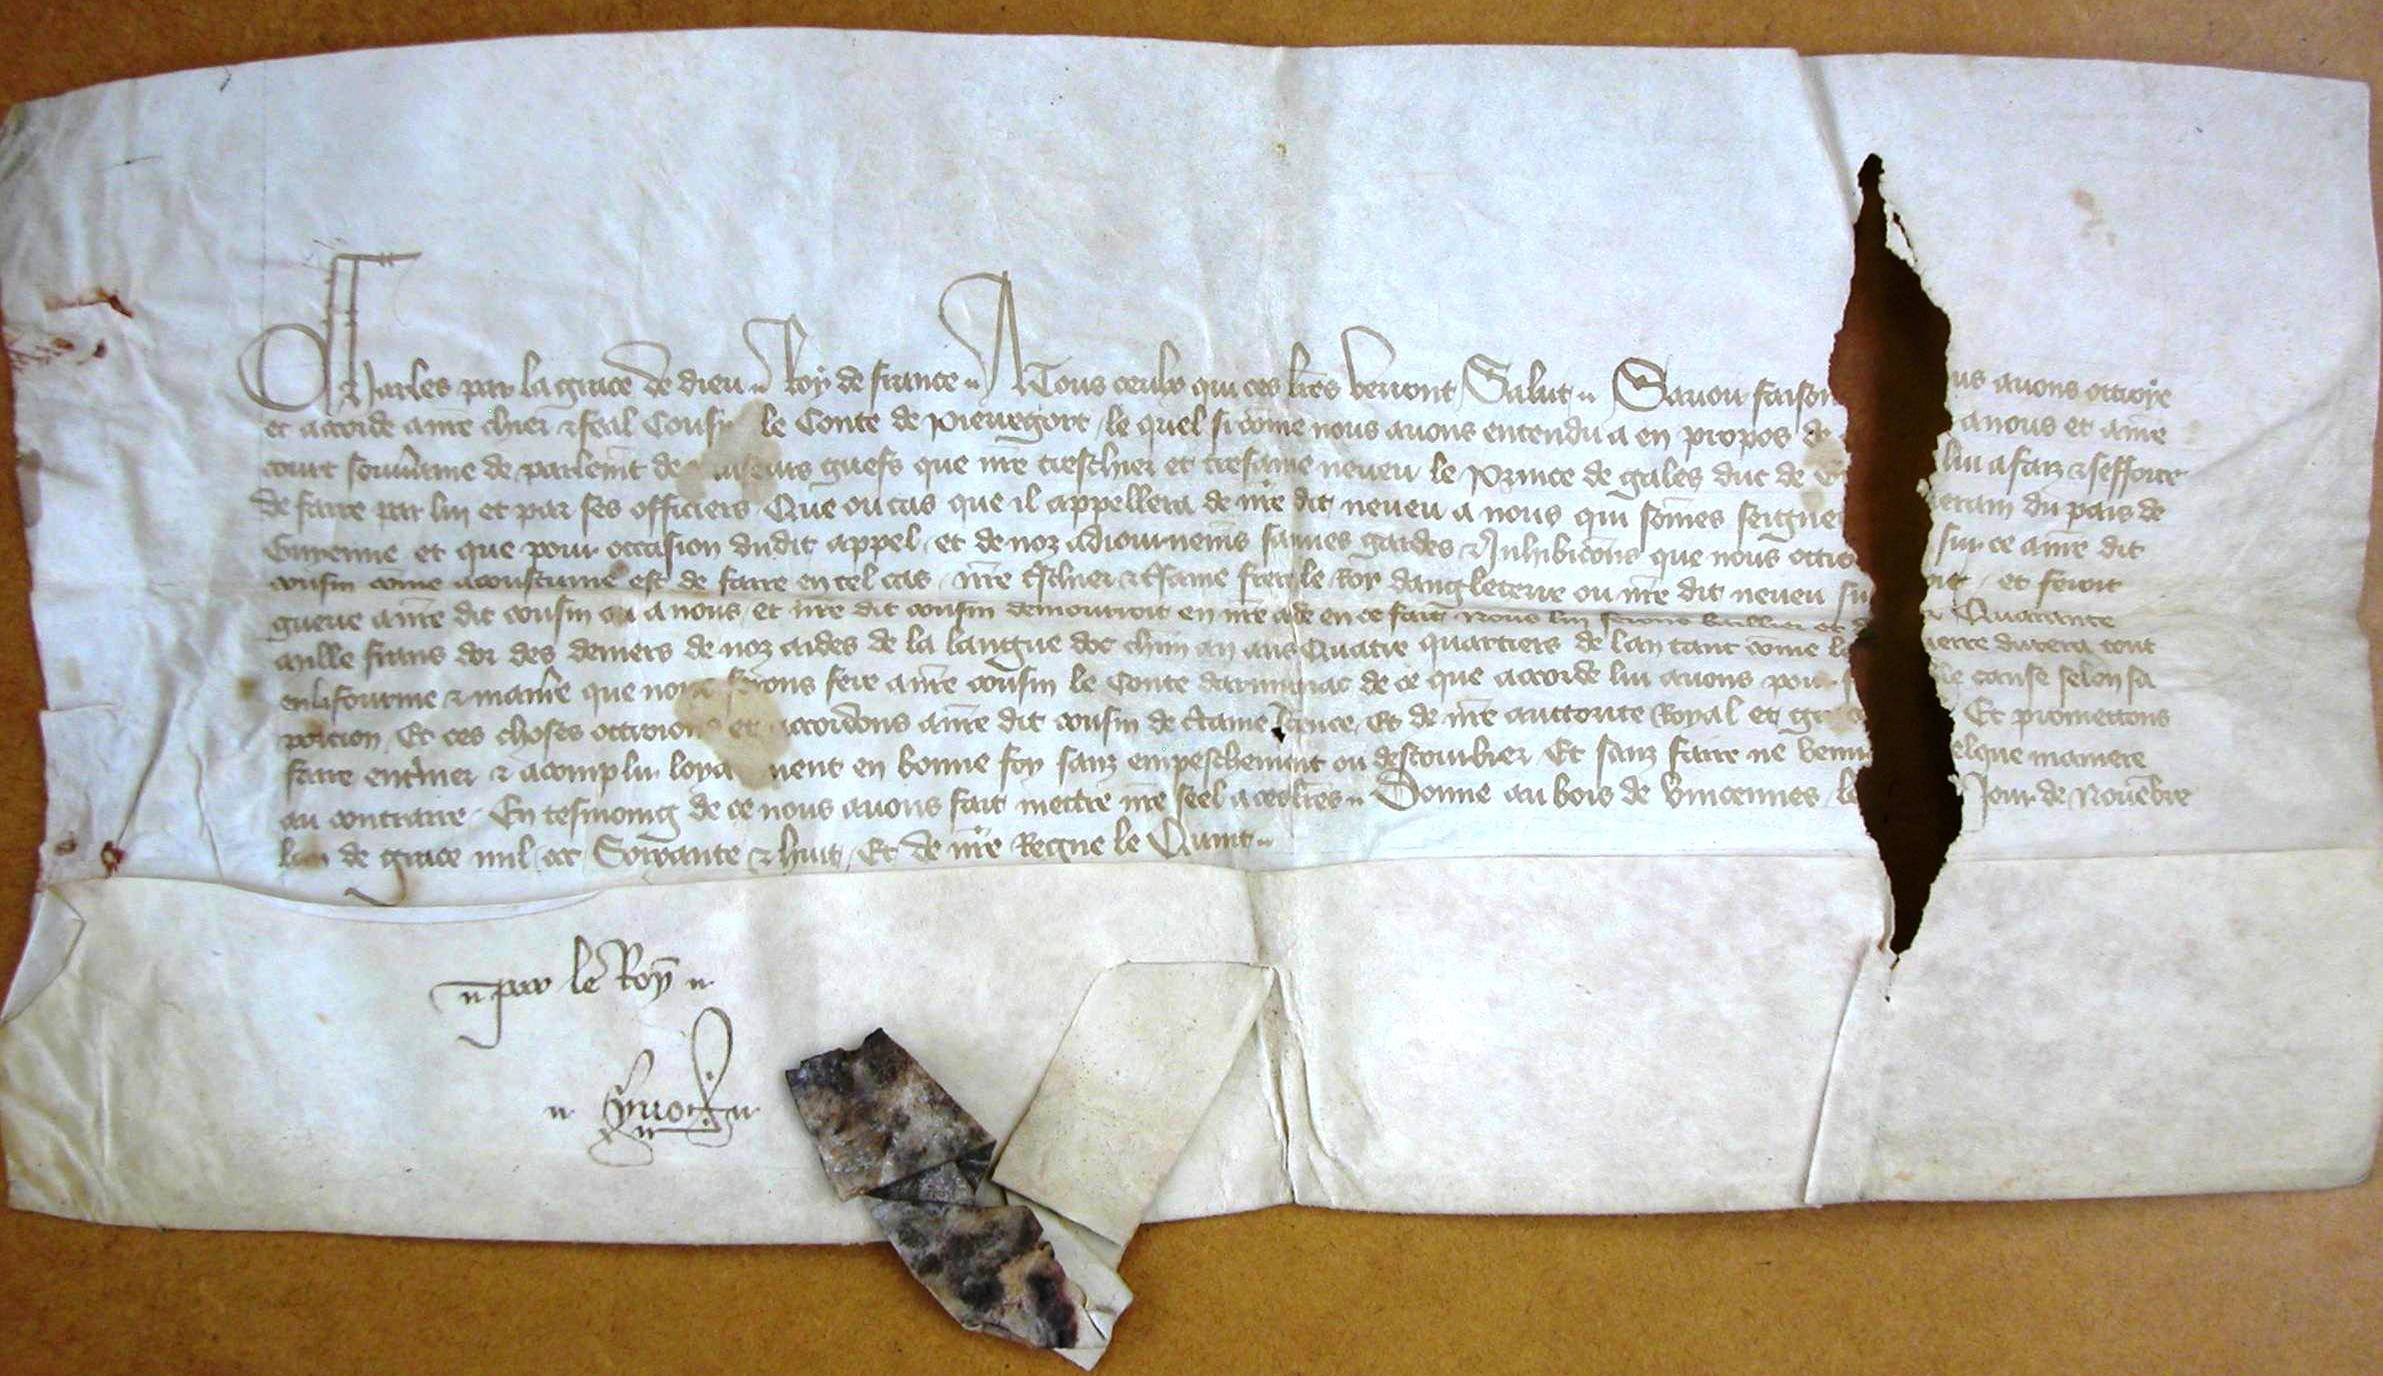 Charles par la grace de dieu Roy de france A Tous ceulx qui ces lres verront Salut Savoir faison us avons ottroye
et accorde a nre chier & feal Cousi le Conte de Pieregort le quel si come nous avons entendu a en propos de a nous et a nre
court souveraine de parlemt de griefs que nre treschier et tresame neveu le Prince de gales duc de G lui a faiz & sefforce
de faire par lui et par ses officiers Que ou cas que il appellera de nre dit neveu a nous qui somes seigne erain du pais de
Guienne et que pour occasion dudit appel et de noz adiournemens sauves gardes & Inhibicions que nous ottro sur ce a nre dit
cousin come acoustume est de faire en tel cas nre tschier & tsame frere le Roy dangleterre ou nre dit neveu oit et feroit
guerre a nre dit cousin ou a nous et nre dit cousin demourroit en nre aide en ce fait Nous lui ferons baillier et Quarante
mille frans dor des deniers de noz aides de la langue doc chun an aus Quatre quartiers de lan tant come la uerre durera tout
en li fourme & manie que nous ferons fere a nre cousin le Conte darminac de ce que accorde lui avons pour cause selon sa
porcion Et ces choses ottroions et accordons a nre dit cousin de ctaine science Et de nre auctorite Royal et Et promettons
faire entriner & acomplir loya ment en bonne foy sanz empeschement ou destourbier Et sanz faire ne venir elque maniere
au contraire En tesmoing de ce nous avons fait mettre nre seel a ces lres Donne au bois de Vincennes le Jour de Novembre
lan de grace mil ccc Soixante & huit Et de nre Regne le Quint
par le Roy
Yvo